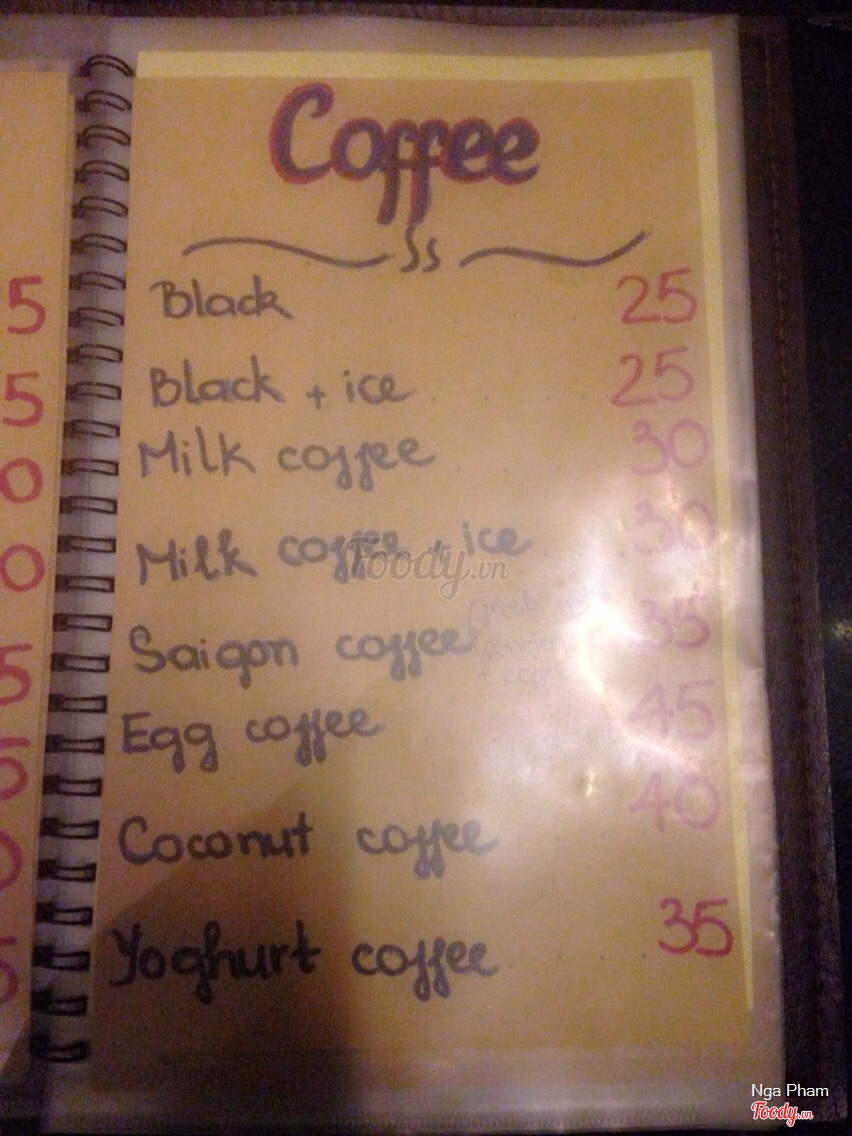 Coffee
Black 25
Black + ice 25
Milk coffee 30
Milk coffee + ice 30
Saigon coffee 35
Egg coffee 45
Coconut coffee 40
Yoghurt coffee 35
5
5
0
0
5
5
0
5
Foody.vn
Nga Pham
Foody.vn